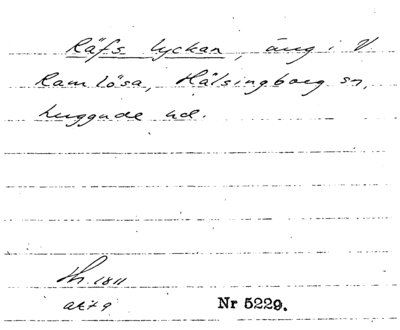 Räfs lyckan, äng i V
Ramlösa, Hälsingborg sn,
Luggude hd.
Sh. 1811
akt 9
Nr 5229.